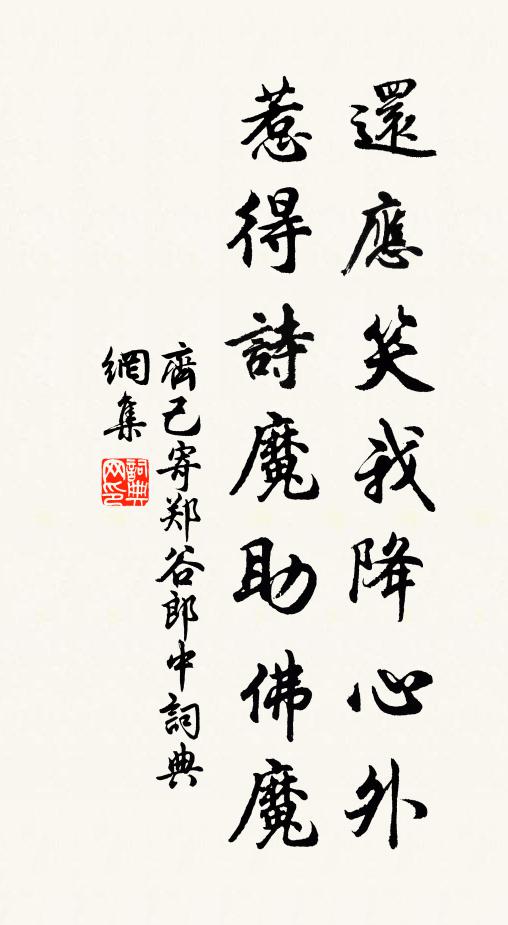 還應笑我降心外
惹得詩魔助佛魔
齊己寄郑谷郎中詞典
網集
詞典网印